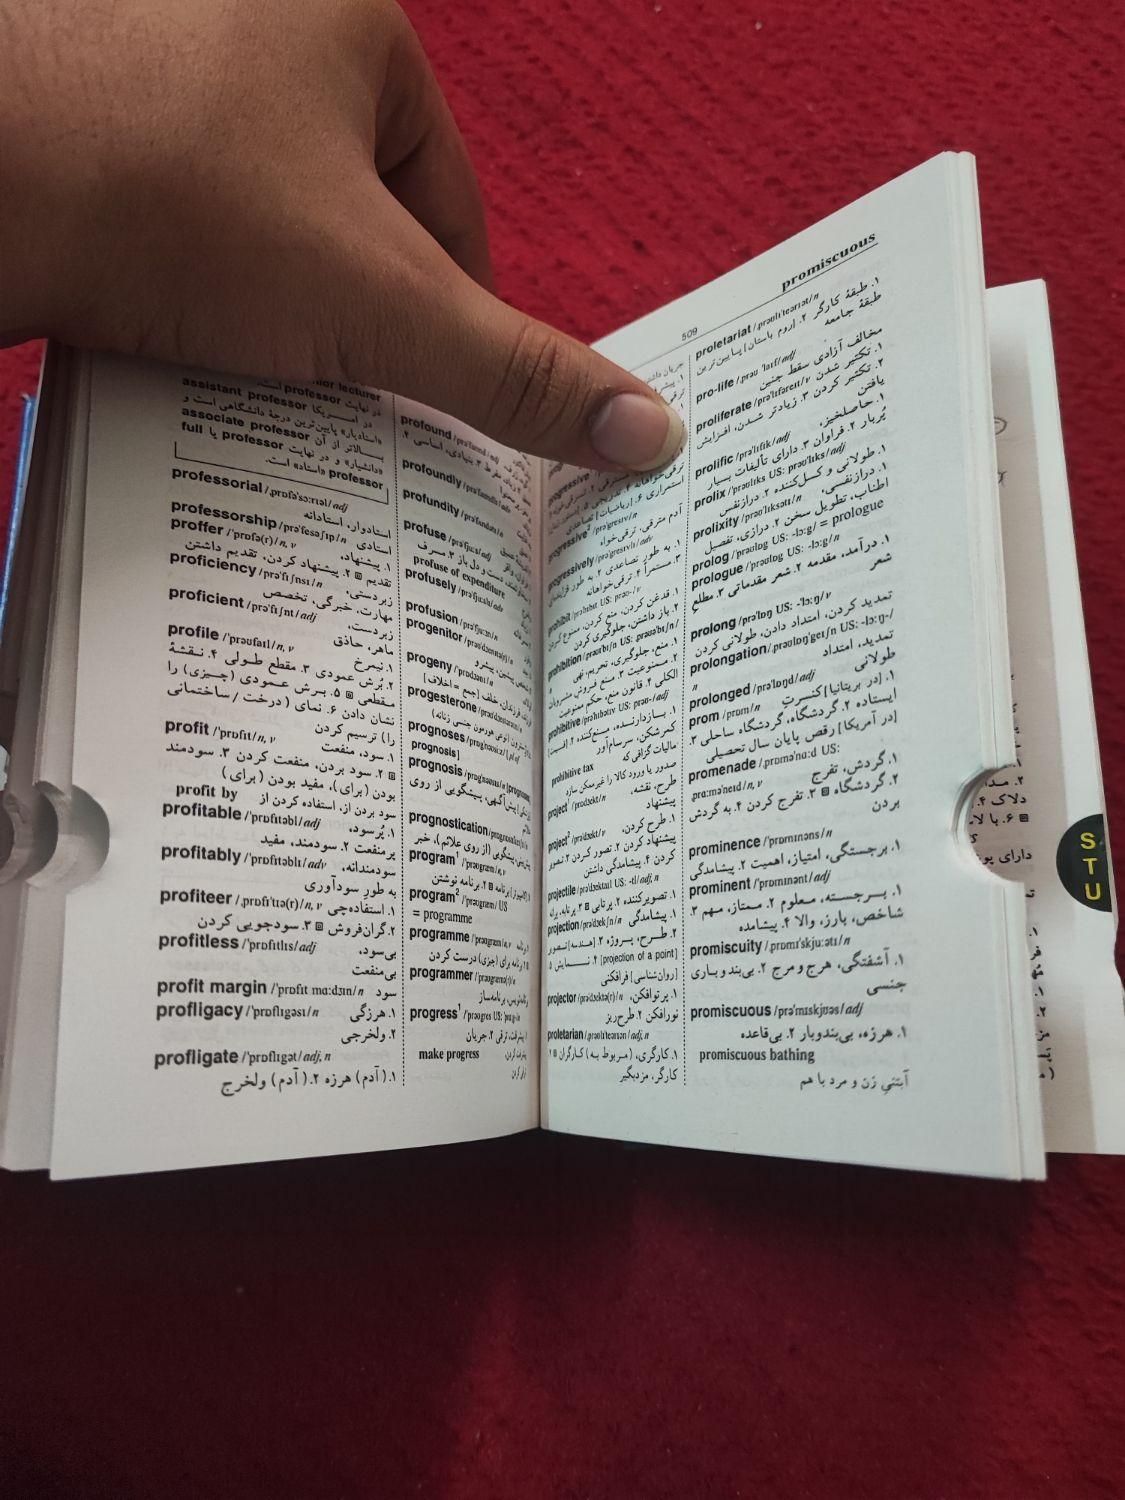 senior lecturer
در نهایت professor است.
در امریکا assistant professor
«استادیار» پایین‌ترین درجهٔ دانشگاهی است و
بالاتر از آن associate professor
«دانشیار» و در نهایت professor یا full
professor «استاد» است.
professorial /ˌprɒfəˈsɔ:rɪəl/adj
استادوار، استادانه
professorship /prəˈfesəʃɪp/n
استادی
proffer /ˈprɒfə(r)/n, v
۱. پیشنهاد،
تقدیم ▣ ۲. پیشنهاد کردن، تقدیم داشتن
proficiency /prəˈfɪʃnsɪ/n
زبردستی،
مهارت، خبرگی، تخصص
proficient /prəˈfɪʃnt/adj
زبردست،
ماهر، حاذق
profile /ˈprəʊfaɪl/n, v
۱. نیمرخ
۲. بُرش عمودی ۳. مقطع طولی ۴. نقشهٔ
مقطعی ▣ ۵. برش عمودی (چیزی) را
نشان دادن ۶. نمای (درخت / ساختمانی
را) ترسیم کردن
profit /ˈprɒfɪt/n, v
۱. سود، منفعت
▣ ۲. سود بردن، منفعت کردن ۳. سودمند
بودن (برای)، مفید بودن (برای)
profit by
سود بردن از، استفاده کردن از
profitable /ˈprɒfɪtəbl/adj
۱. پُرسود،
پرمنفعت ۲. سودمند، مفید
profitably /ˈprɒfɪtəblɪ/adv
سودمندانه،
به طورِ سودآوری
profiteer /ˌprɒfɪˈtɪə(r)/n, v
۱. استفاده‌چی
۲. گران‌فروش ▣ ۳. سودجویی کردن
profitless /ˈprɒfɪtlɪs/adj
بی‌سود،
بی‌منفعت
profit margin /ˈprɒfɪt mɑ:dʒɪn/n
سود
profligacy /ˈprɒflɪgəsɪ/n
۱. هرزگی
۲. ولخرجی
profligate /ˈprɒflɪgət/adj, n
۱. (آدم) هرزه ۲. (آدم) ولخرج
profound /prəˈfaʊnd/adj
مفرط ۳. بنیادی، اساسی ۴.
profoundly /prəˈfaʊndlɪ/adv
profundity /prəˈfʌndətɪ/n
profuse /prəˈfju:s/adj
دست و دل باز ۳. مسرف
profuse of expenditure
profusely /prəˈfju:slɪ/adv
profusion /prəˈfju:ʒn/n
progenitor /prəʊˈdʒenɪtə(r)/n
پیشین، پیشرو
progeny /ˈprɒdʒənɪ/n
فرزندان، خلف [جمع = اخلاف]
progesterone /prəˈdʒestərəʊn/n
(نوعی هورمون جنسی زنانه)
prognoses /prɒgˈnəʊsi:z/ [pl of
prognosis]
prognosis /prɒgˈnəʊsɪs/n
پیش‌آگهی، پیشگویی از روی
prognostication /prɒgnɒstɪˈkeɪʃn/n
پیشگویی (از روی علائم)، خبر
program¹ /ˈprəʊgræm/n, v
[کامپیوتر] برنامه ▣ ۲. برنامه نوشتن
program² /ˈprəʊgræm/ US
= programme
programme /ˈprəʊgræm/n, v
برنامه
▣ ۲. برنامه برای (چیزی) درست کردن
programmer /ˈprəʊgræmə(r)/n
برنامه‌نویس، برنامه‌ساز
progress¹ /ˈprəʊgres US: ˈprɒg-/n
۱. پیشرفت، ترقی ۲. جریان
make progress
پیشرفت کردن
ترقی کردن
509
promiscuous
جریان داشتن
ترقی‌خواهانه ۴. تدریجی ۵.
استمراری ۶. [ریاضیات] تصاعدی
progressive² /prəˈgresɪv/n
آدم مترقی، ترقی‌خواه
progressively /prəˈgresɪvlɪ/adv
۱. به طور تصاعدی ۲. به طور فزاینده‌ای
۳. مستمراً ۴. ترقی‌خواهانه
prohibit /prəˈhɪbɪt US: prəʊ-/v
۱. قدغن کردن، منع کردن، ممنوع کردن
۲. باز داشتن، جلوگیری کردن
prohibition /ˌprəʊɪˈbɪʃn US: ˌprəʊəˈbɪʃn/
n
۱. منع، جلوگیری، تحریم، نهی
۲. ممنوعیت ۳. منع فروش مشروبات
الکلی ۴. قانون منع، حکم ممنوعیت
prohibitive /prəˈhɪbətɪv US: prəʊ-/adj
۱. بازدارنده، منع‌کننده ۲. [قیمت]
کمرشکن، سرسام‌آور
prohibitive tax
مالیات گزافی که
صدور یا ورود کالا را غیرممکن سازد
project¹ /ˈprɒdʒekt/n
طرح، نقشه،
پیشنهاد
project² /prəˈdʒekt/v
۱. طرح کردن،
پیشنهاد کردن ۲. تصور کردن ۳. تصویر
کردن ۴. پیشامدگی داشتن
projectile /prəˈdʒektaɪl US: -tl/adj, n
۱. تصویرکننده ۲. پرتابی ▣ ۳. پرتابه، پرانه
projection /prəˈdʒekʃn/n
۱. پیشامدگی
۲. طرح، پروژه ۳. [هندسه] تصویر
[projection of a point] ۴. نمایش ۵.
[روان‌شناسی] فرافکنی
projector /prəˈdʒektə(r)/n
۱. پرتوافکن،
نورافکن ۲. طرح‌ریز
proletarian /ˌprəʊlɪˈteərɪən/adj, n
۱. کارگری، (مربوط به) کارگران ▣ ۲.
کارگر، مزدبگیر
proletariat /ˌprəʊlɪˈteərɪət/n
۱. طبقهٔ کارگر ۲. [روم باستان] پایین‌ترین
طبقهٔ جامعه
pro-life /ˌprəʊ ˈlaɪf/adj
مخالف آزادی سقط جنین
proliferate /prəˈlɪfəreɪt/v
۱. تکثیر شدن
۲. تکثیر کردن ۳. زیادتر شدن، افزایش
یافتن
prolific /prəˈlɪfɪk/adj
۱. حاصلخیز،
پُربار ۲. فراوان ۳. دارای تألیفات بسیار
prolix /ˈprəʊlɪks US: prəʊˈlɪks/adj
۱. طولانی و کسل‌کننده ۲. درازنفس
prolixity /prəʊˈlɪksətɪ/n
۱. درازنفسی،
اطناب، تطویل سخن ۲. درازی، تفصیل
prolog /ˈprəʊlɒg US: -lɔ:g/ = prologue
prologue /ˈprəʊlɒg US: -lɔ:g/n
۱. درآمد، مقدمه ۲. شعر مقدماتی ۳. مطلعِ
شعر
prolong /prəˈlɒŋ US: -ˈlɔ:ŋ/v
تمدید کردن، امتداد دادن، طولانی کردن
prolongation /ˌprəʊlɒŋˈgeɪʃn US: -lɔ:ŋ-/
n
تمدید، امتداد
prolonged /prəˈlɒŋd/adj
طولانی
prom /prɒm/n
۱. [در بریتانیا] کنسرتِ
ایستاده ۲. گردشگاه، گردشگاه ساحلی ۳.
[در آمریکا] رقص پایان سال تحصیلی
promenade /ˌprɒməˈnɑ:d US:
ˌprɑ:məˈneɪd/n, v
۱. گردش، تفرج
۲. گردشگاه ▣ ۳. تفرج کردن ۴. به گردش
بردن
prominence /ˈprɒmɪnəns/n
۱. برجستگی، امتیاز، اهمیت ۲. پیشامدگی
prominent /ˈprɒmɪnənt/adj
۱. برجسته، معلوم ۲. ممتاز، مهم ۳.
شاخص، بارز، والا ۴. پیشامده
promiscuity /ˌprɒmɪˈskju:ətɪ/n
۱. آشفتگی، هرج و مرج ۲. بی‌بندوباری
جنسی
promiscuous /prəˈmɪskjʊəs/adj
۱. هرزه، بی‌بندوبار ۲. بی‌قاعده
promiscuous bathing
آبتنی زن و مرد با هم
S
T
U